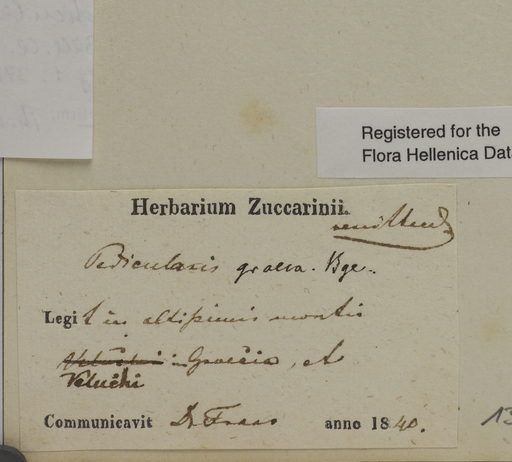 Registered for the
Flora Hellenica Dat
Herbarium Zuccarinii.
Pedicularis graeca. Bge.
Legit in altissimis montis
in Graecia, et
Veluchi
Communicavit Dr Fraas anno 1840.
13